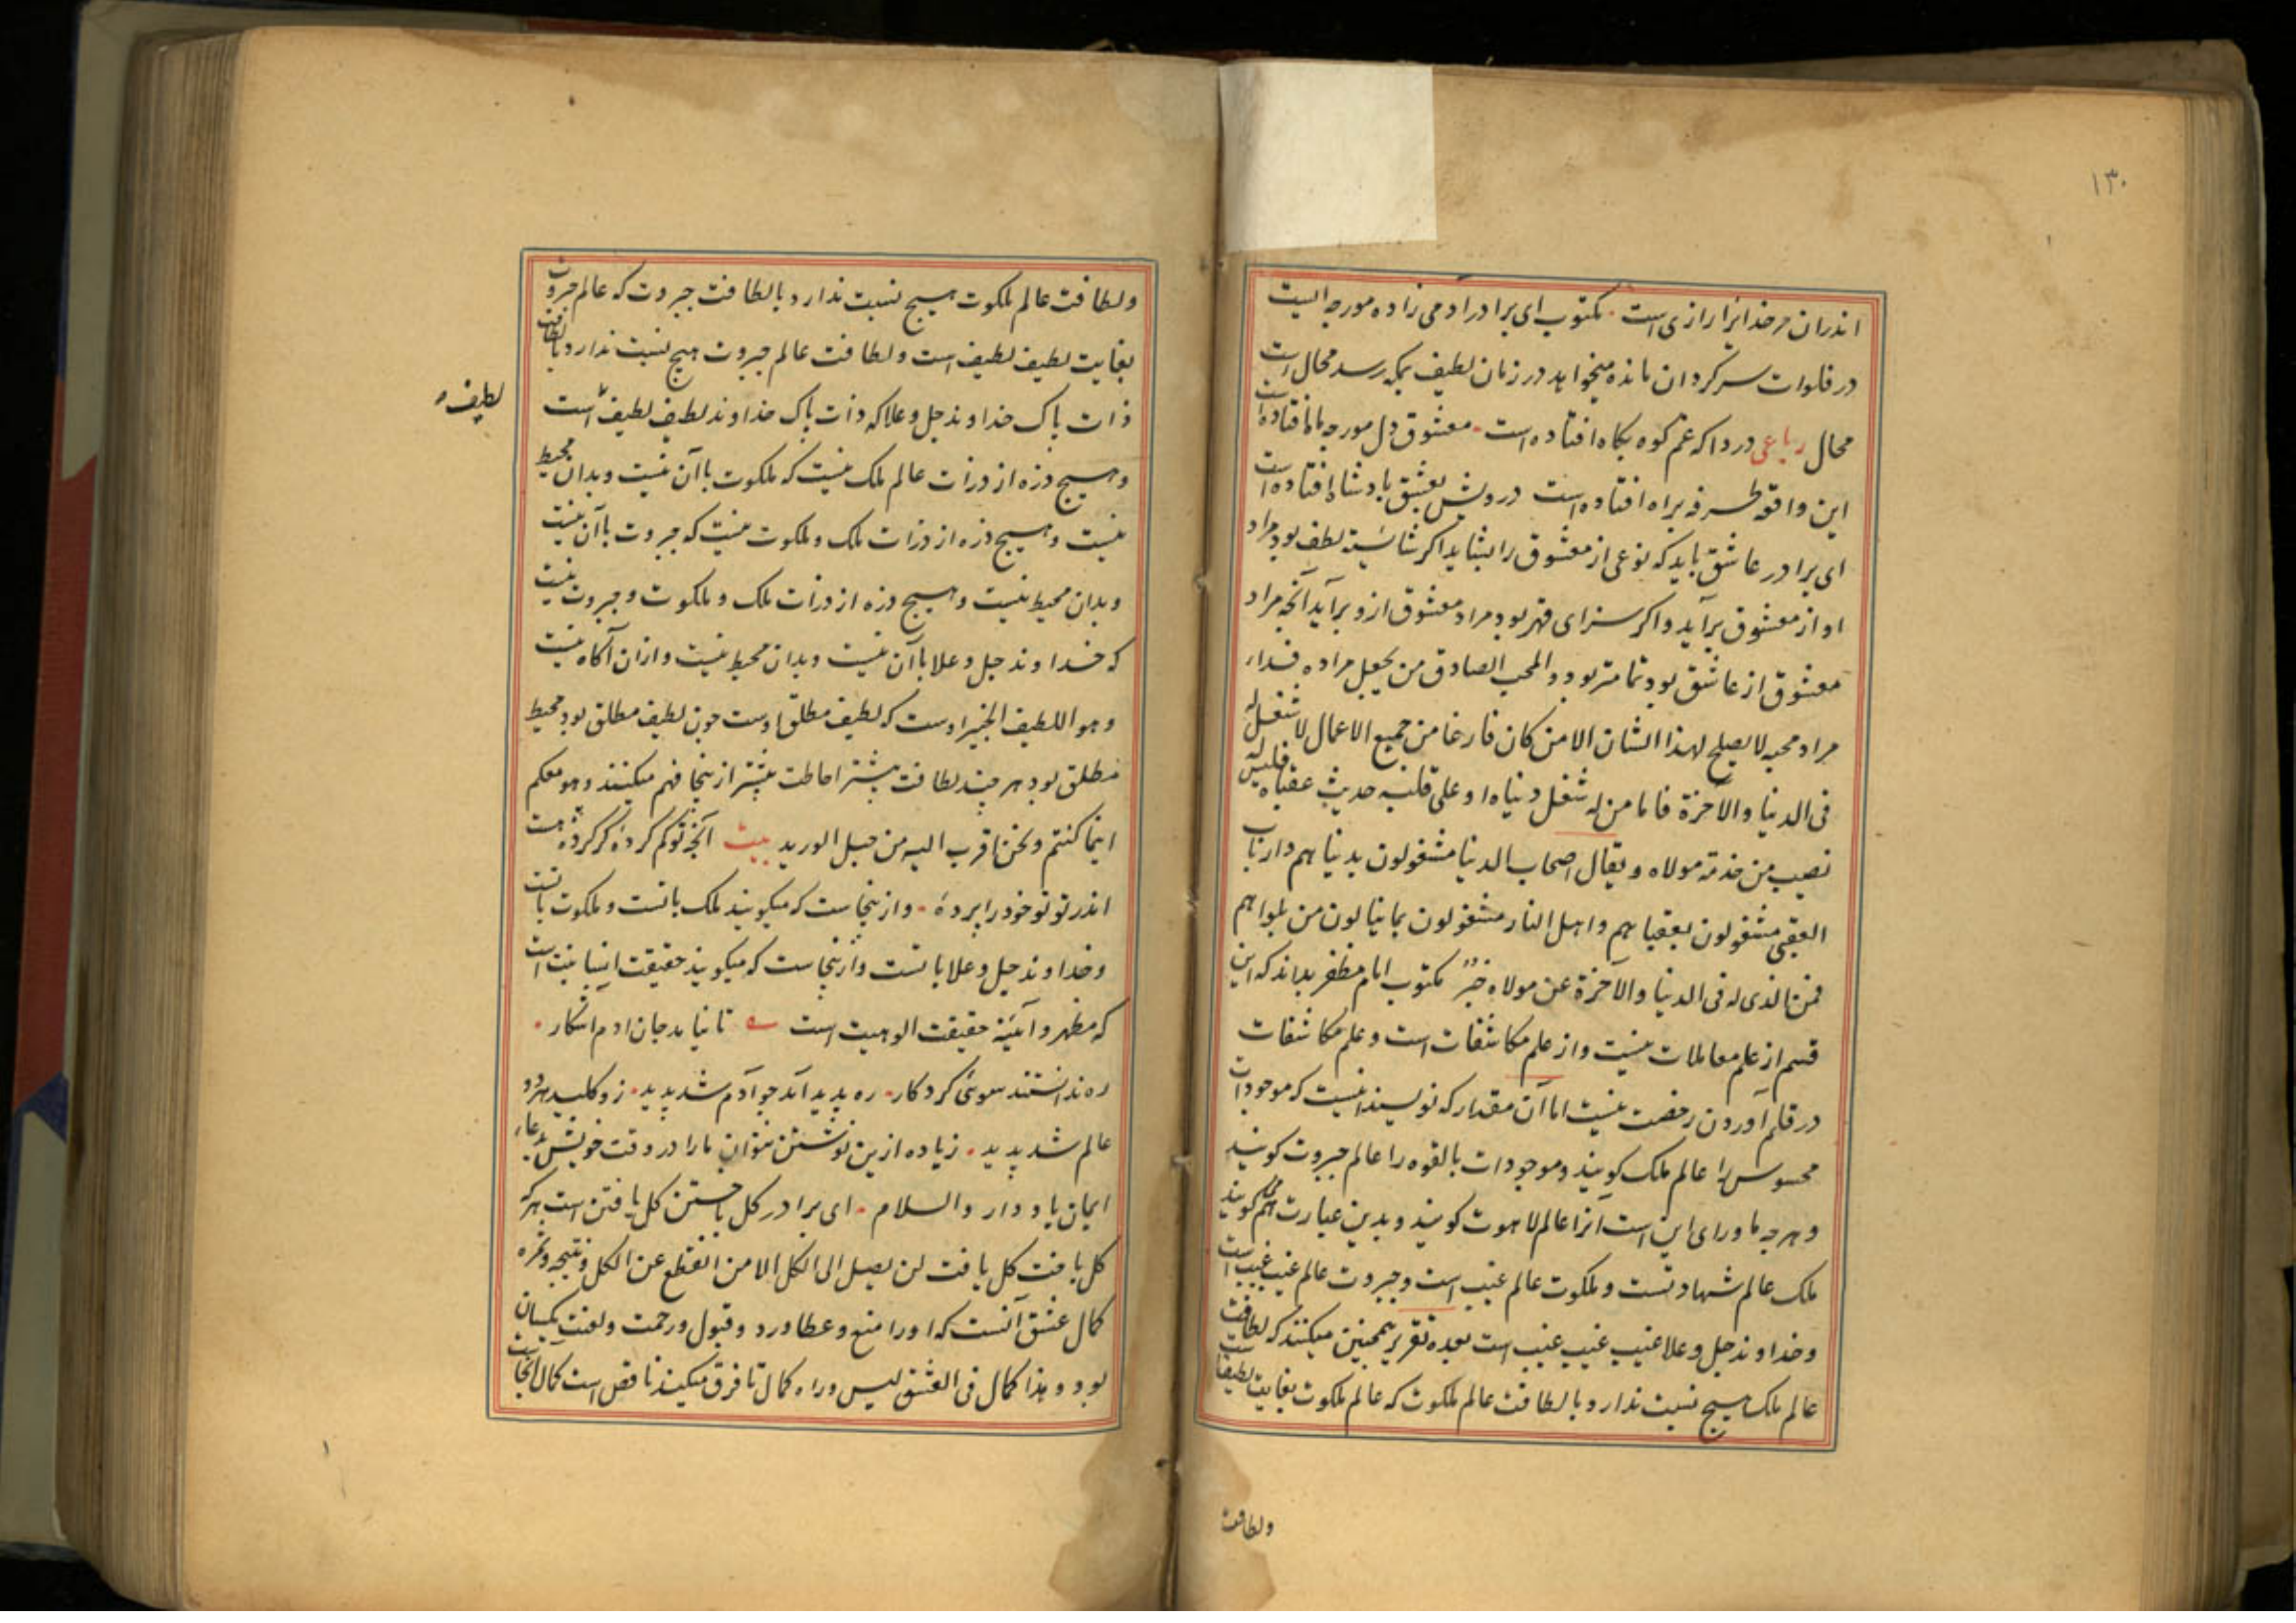 ۱۳۰
اندران مر خدایرا رازی است ۰ مکتوب ای برادر ادمی زاده مورچه ایست
در فلوات سرکردان مانده میخواهد در زمان لطیف بمکه رسد محال است
محال رباعی دردا که غم کوه بکاه افتاده است ۰ معشوق دل مورچه ماه افتاده است
این واقعه طرفه براه افتاده است درویش بعشق پادشاه افتاده است
ای برادر عاشق باید که نوعی از معشوق را بشاید اکر شایسته لطف بود مراد
او از معشوق برآید و اکر سزای قهر بود مراد معشوق ازو برآید آنچه مراد
معشوق از عاشق بود تمامتر بود و المحب الصادق من یجعل مراده فداء
مراد محبه لا یصلح لهذا الشان الا من کان فارغا من جمیع الاعمال لا شغل له
فی الدنیا والآخرة فاما من له شغل دنیاه او علی قلبه حدیث عقباه فلیس له
نصیب من خدمة مولاه ویقال اصحاب الدنیا مشغولون بدنیاهم وارباب
العقبی مشغولون بعقباهم واهل النار مشغولون بما ینالون من بلواهم
فمن الذی له فی الدنیا والآخرة عن مولاه خبر مکتوب امام مظفر بداند که این
قسم از علم معاملات نیست و از علم مکاشفات است و علم مکاشفات
در قلم آوردن رخصت نیست اما آن مقدار که نویسند اینست که موجودات
محسوس را عالم ملک کویند و موجودات بالقوه را عالم جبروت کویند
و هرچه ماورای این است آنرا عالم لاهوت کویند و بدین عبارت هم کویند
ملک عالم شهادتست و ملکوت عالم غیب است و جبروت عالم غیب غیب است
و خداوند جل وعلا غیب غیب غیب است بعده تقریر همچنین میکنند که لطافت
عالم ملک هیچ نسبت ندارد با لطافت عالم ملکوت که عالم ملکوت بغایت لطیف است
ولطافت
ولطافت عالم ملکوت هیچ نسبت ندارد با لطافت جبروت که عالم جبروت
بغایت لطیف لطیف است ولطافت عالم جبروت هیچ نسبت ندارد با لطافت
ذات پاک خداوند جل وعلا که ذات پاک خداوند لطیف لطیف است
لطیف
و هیچ ذره از ذرات عالم ملک نیست که ملکوت با آن نیست و بدان محیط
نیست و هیچ ذره از ذرات ملک و ملکوت نیست که جبروت با آن نیست
و بدان محیط نیست و هیچ ذره از ذرات ملک و ملکوت و جبروت نیست
که خداوند جل وعلا با آن نیست و بدان محیط نیست و ازان آکاه نیست
وهو اللطیف الخبیر اوست که لطیف مطلق اوست چون لطیف مطلق بود محیط
مطلق بود هرچند لطافت بیشتر احاطت بیشتر ازینجا فهم میکنند وهو معکم
اینما کنتم ونحن اقرب الیه من حبل الورید بیت آنچه تو کم کردهٔ کر کردهٔ هست
اندر تو تو خود را پردهٔ ۰ و ازینجاست که میکویند ملک باتست و ملکوت باتست
و خداوند جل وعلا باتست و ازینجاست که میکویند حقیقت انسانیت است
که مظهر و آئینه حقیقت الوهیت است تا نیامد جان ادم اشکار ۰
ره ندانستند سوی کردکار ۰ ره پدید آمد چو آدم شد پدید ۰ زو کلید هر دو
عالم شد پدید ۰ زیاده ازین نوشتن نتوان ما را در وقت خویش بدعاء
ایمان یاد دار والسلام ۰ ای برادر کل باختن کل یافتن است هر که
کل باخت کل یافت لن یصل الی الکل الا من انقطع عن الکل و نتیجه و ثمره
کمال عشق آنست که او را منع و عطا و رد و قبول و رحمت و لعنت یکسان
بود وهذا کمال فی العشق لیس وراه کمال تا فرق میکند ناقص است کمال آنجاست